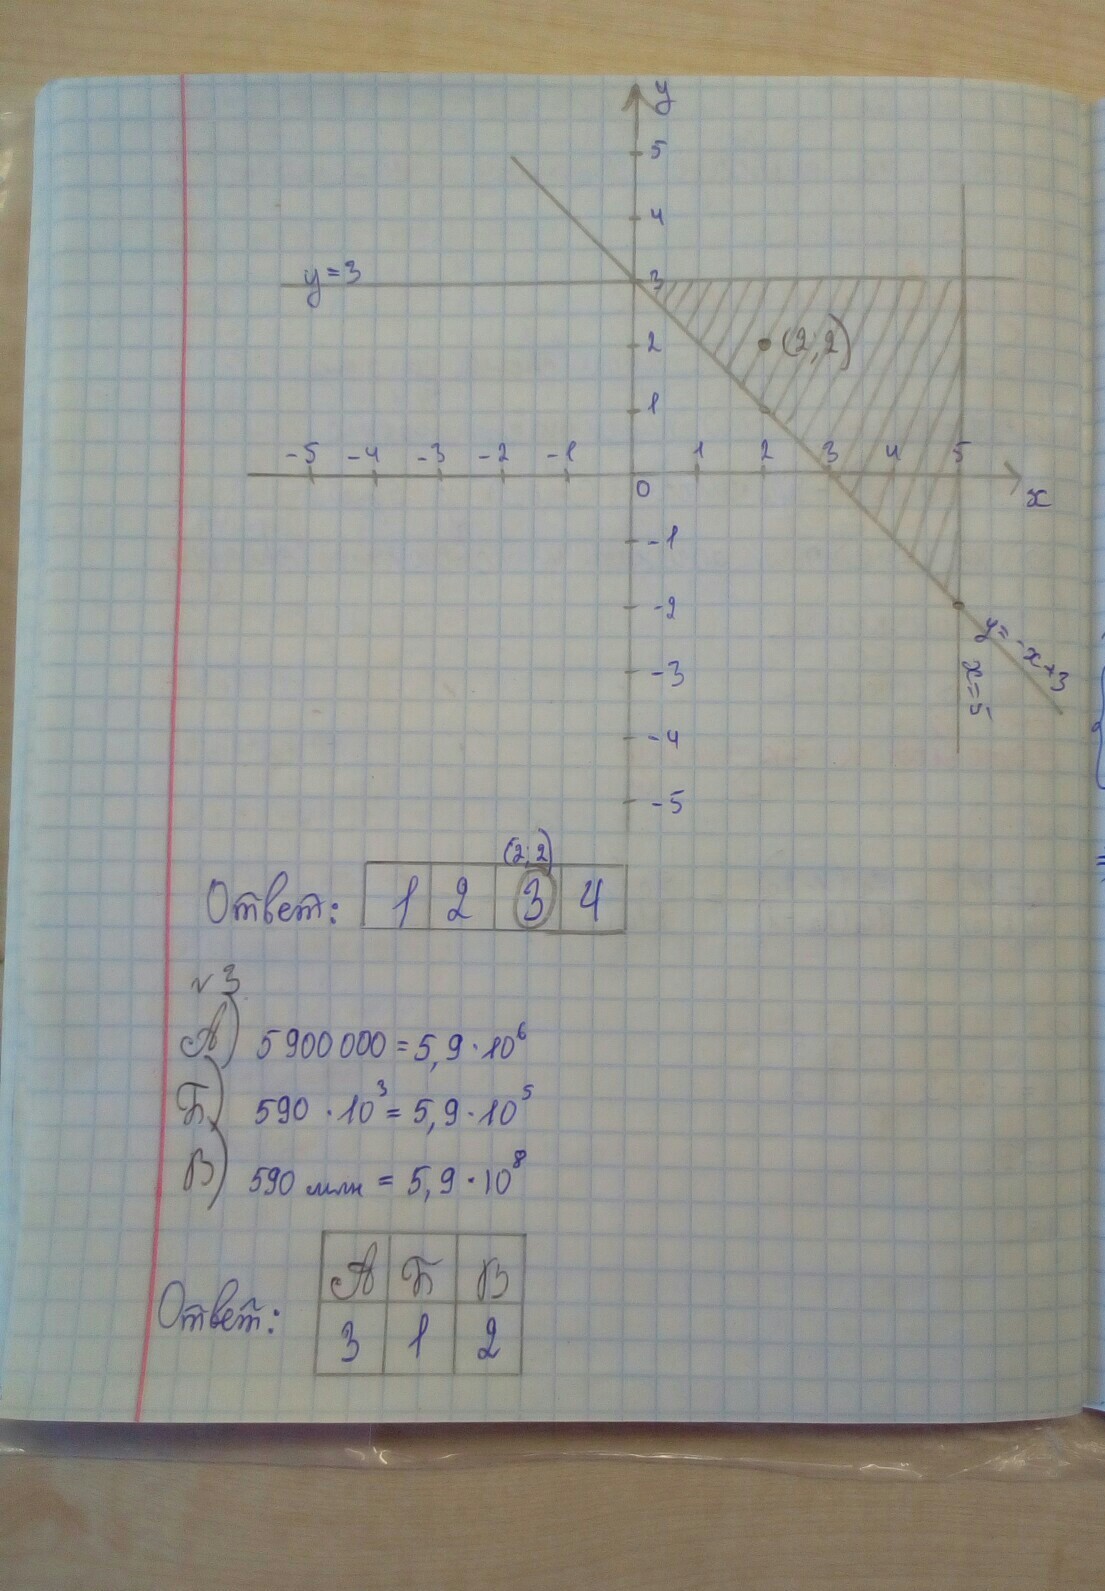 y
5
4
y=3
3
2
(2;2)
1
-5 -4 -3 -2 -1 1 2 3 4 5
0
x
-1
-2
y=-x+3
x=5
-3
-4
-5
(2;2)
Ответ: 1 2 3 4
№3
А) 5900000=5,9·10⁶
Б) 590·10³=5,9·10⁵
В) 590 млн = 5,9·10⁸
А Б В
Ответ:
3 1 2